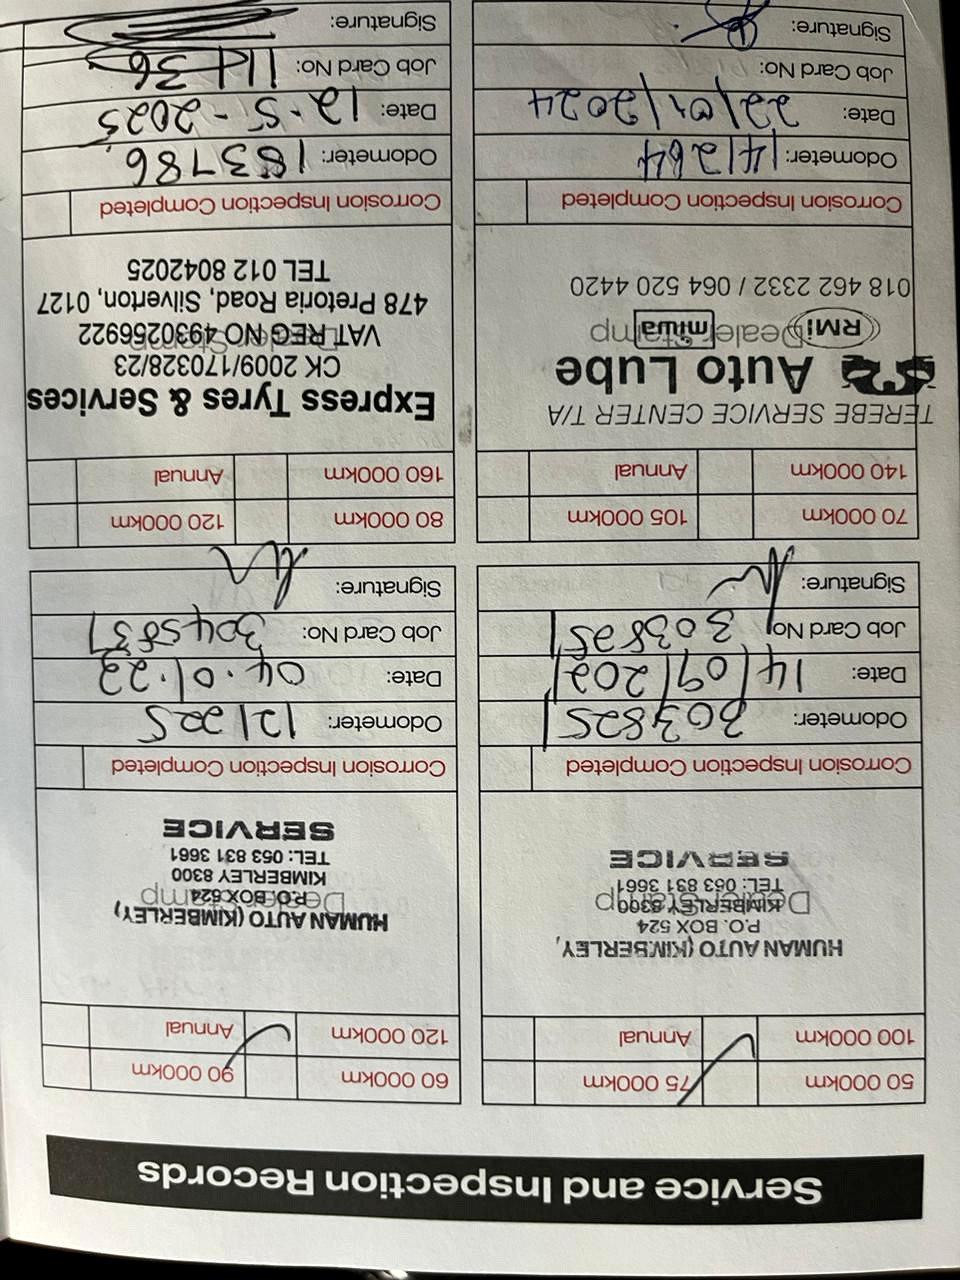 Service and Inspection Records
50 000km 75 000km
100 000km Annual
Dealer Stamp
HUMAN AUTO (KIMBERLEY,
P.O. BOX 524
KIMBERLEY 8300
TEL: 053 831 3661
SERVICE
Corrosion Inspection Completed
Odometer: 303825
Date: 14/09/2021
Job Card No: 303825
Signature:
60 000km 90 000km
120 000km Annual
HUMAN AUTO (KIMBERLEY)
Dealer Stamp
P.O. BOX 524
KIMBERLEY 8300
TEL: 053 831 3661
SERVICE
Corrosion Inspection Completed
Odometer: 121225
Date: 04.01.22
Job Card No:
Signature:
70 000km 105 000km
140 000km Annual
TEREBE SERVICE CENTER T/A
Auto Lube
Dealer Stamp
RMI miwa
018 462 2332 / 064 520 4420
Corrosion Inspection Completed
Odometer: 141264
Date: 22/01/2024
Job Card No:
Signature:
80 000km 120 000km
160 000km Annual
Express Tyres & Services
CK 2009/170328/23
Dealer Stamp
VAT REG NO 4930256922
478 Pretoria Road, Silverton, 0127
TEL 012 8042025
Corrosion Inspection Completed
Odometer: 183786
Date: 12-5-2025
Job Card No: 11436
Signature: